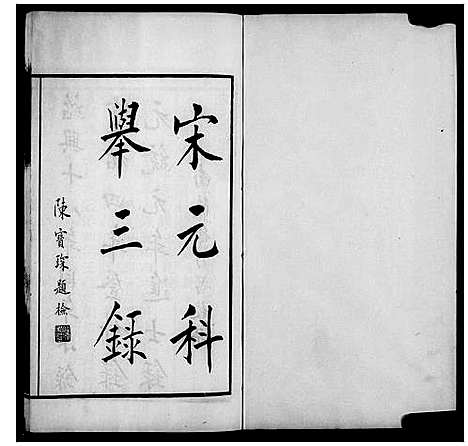 宋元科
舉三録
陳寶琛題檢